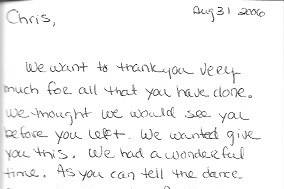 Aug 31 2006
Chris,
We want to thank you very
much for all that you have done.
We thought we would see you
before you left. We wanted give
you this. We had a wonderful
time. As you can tell the dance